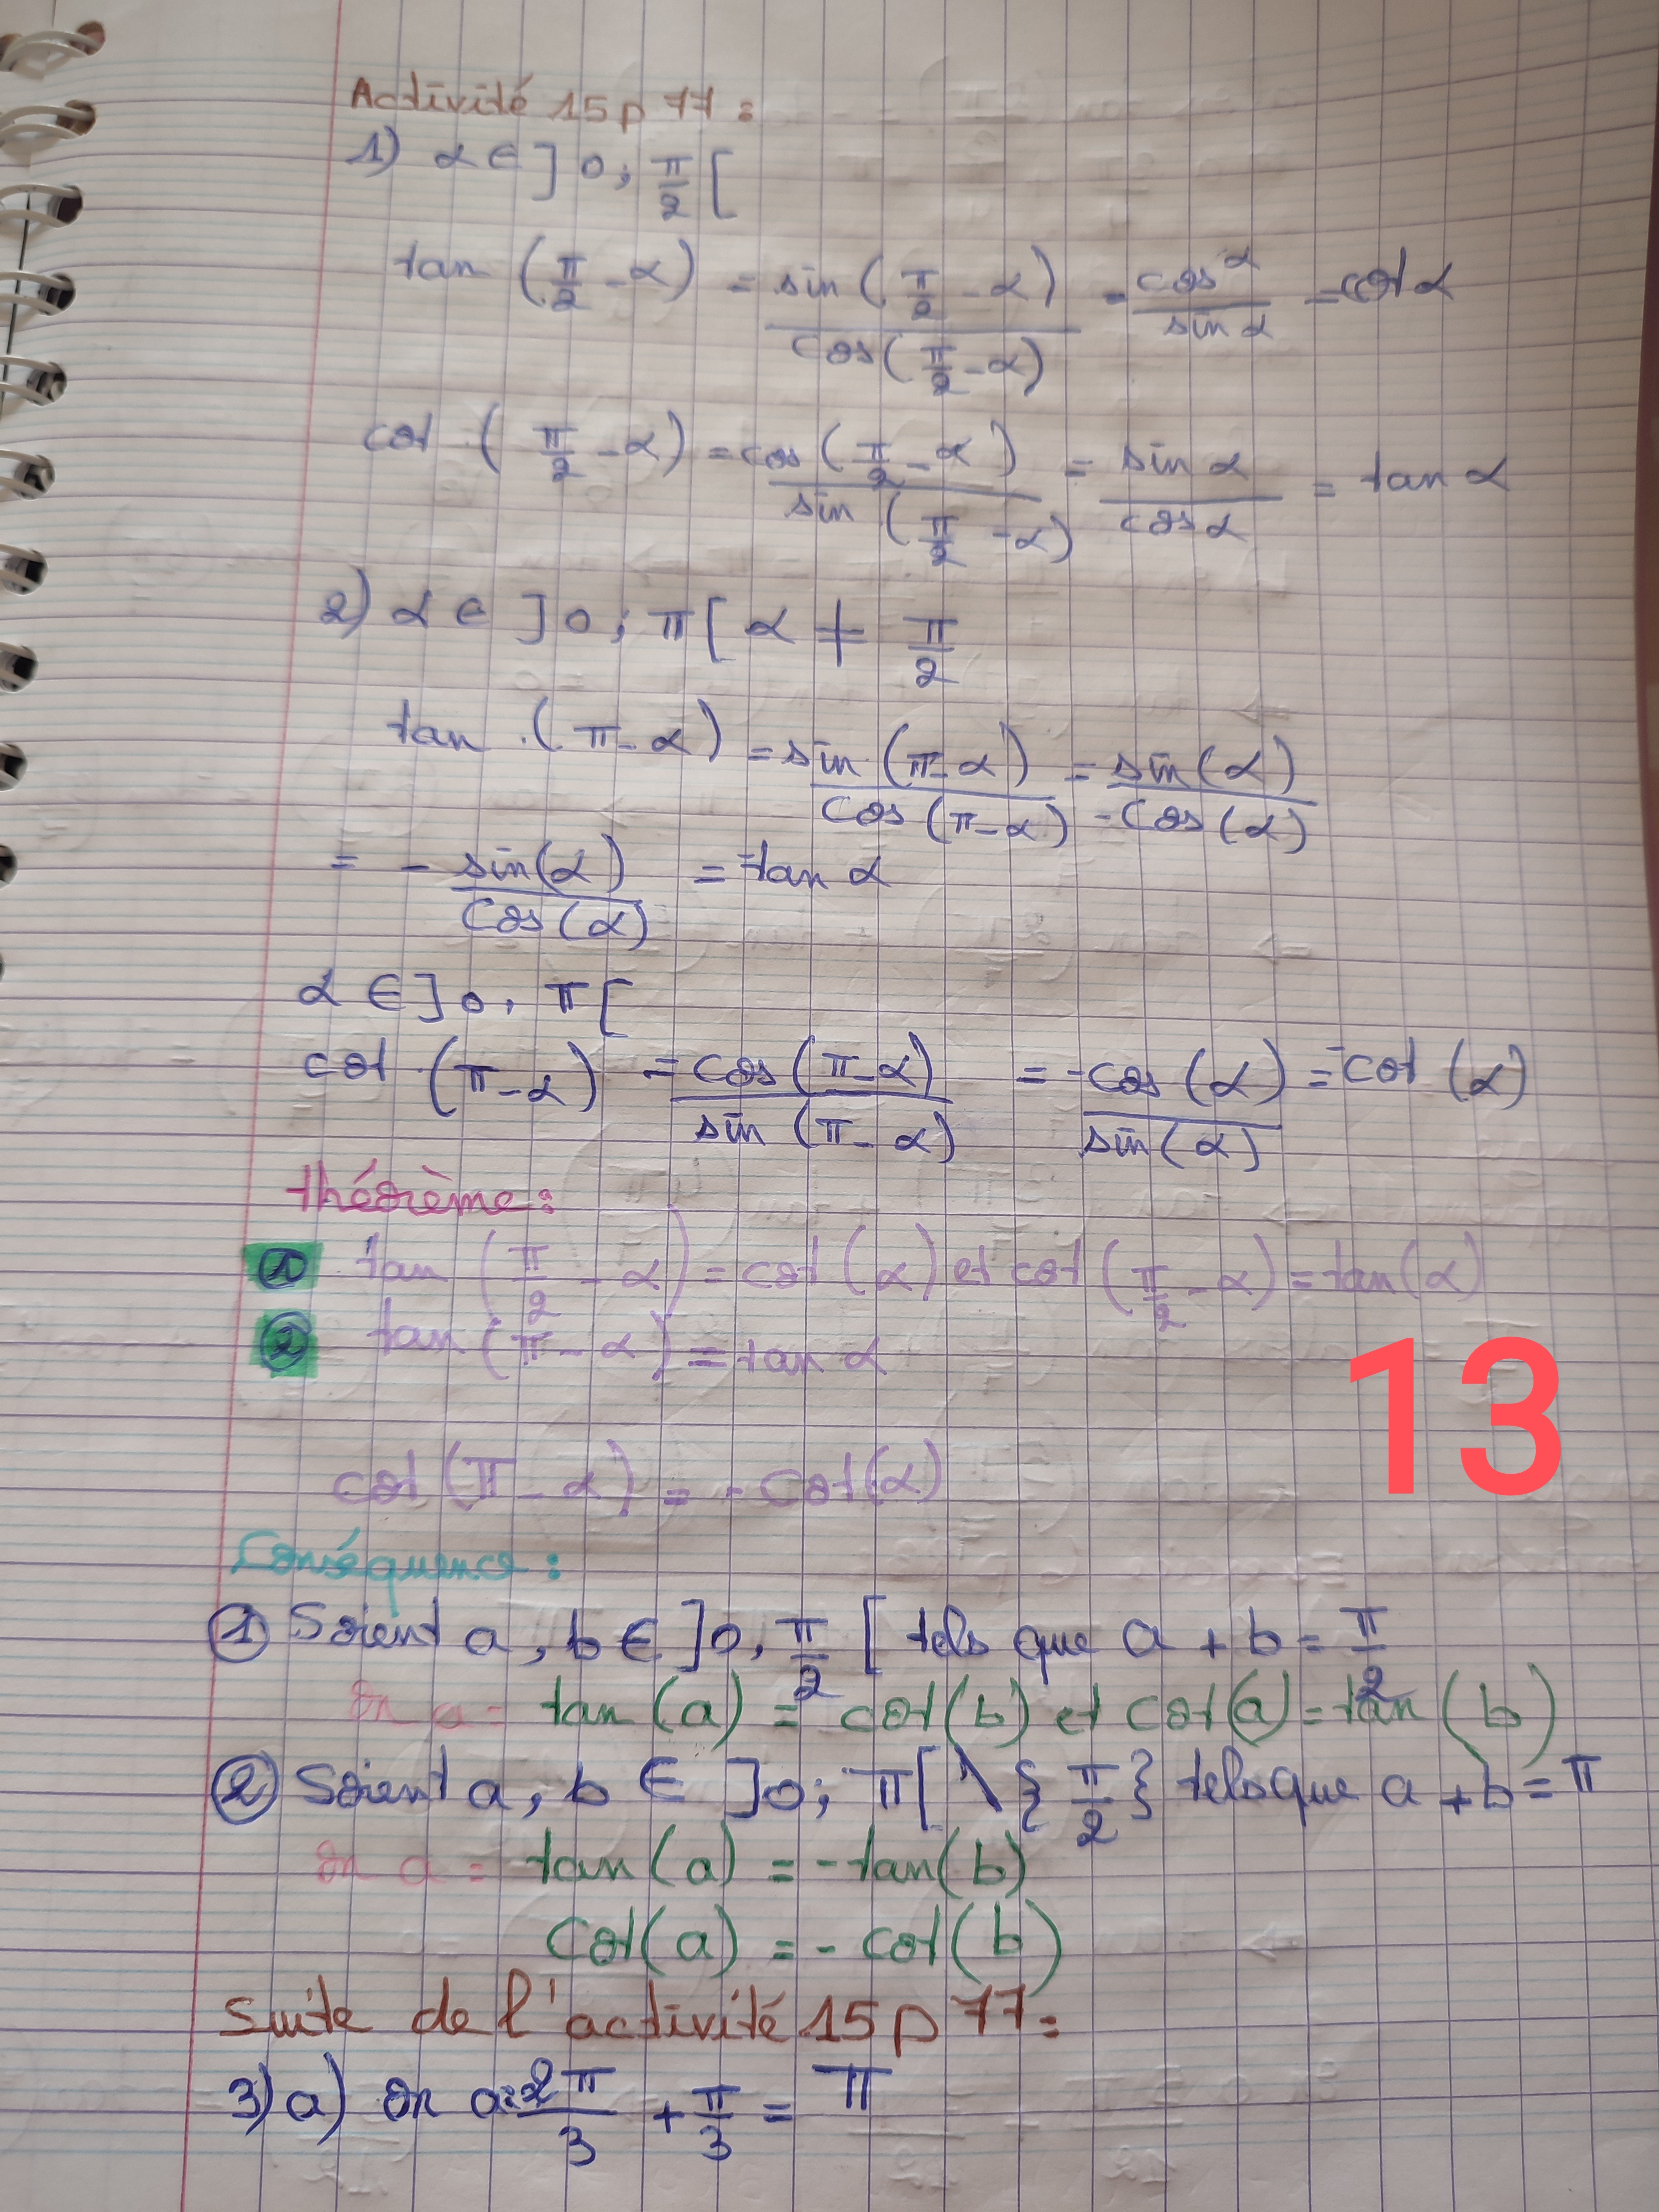 Activité 15 p 77 :
1) α ∈ ]0 ; π/2 [
tan (π/2 - α) = sin(π/2 - α) / cos(π/2 - α) = cos α / sin α = cot α
cot (π/2 - α) = cos(π/2 - α) / sin(π/2 - α) = sin α / cos α = tan α
2) α ∈ ]0 ; π[ α ≠ π/2
tan (π - α) = sin(π - α) / cos(π - α) = sin(α) / -cos(α)
= - sin(α) / cos(α) = -tan α
α ∈ ]0, π[
cot (π - α) = cos(π - α) / sin(π - α) = -cos(α) / sin(α) = -cot (α)
théorème :
① tan (π/2 - α) = cot (α) et cot (π/2 - α) = tan(α)
② tan(π - α) = tan α
cot (π - α) = - cot(α)
13
Conséquence :
① Soient a, b ∈ ]0, π/2 [ tels que a + b = π/2
on a = tan(a) = cot(b) et cot(a) = tan(b)
② Soient a, b ∈ ]0 ; π[ \ { π/2 } tels que a + b = π
on a = tan(a) = -tan(b)
cot(a) = - cot(b)
Suite de l'activité 15 p 77 :
3) a) on a : 2π/3 + π/3 = π